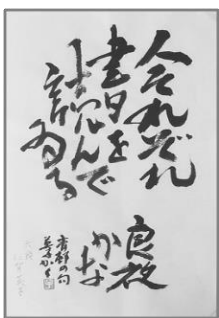 人それぞれ
書を
読んで
ゐる
良夜
かな
青邨の句